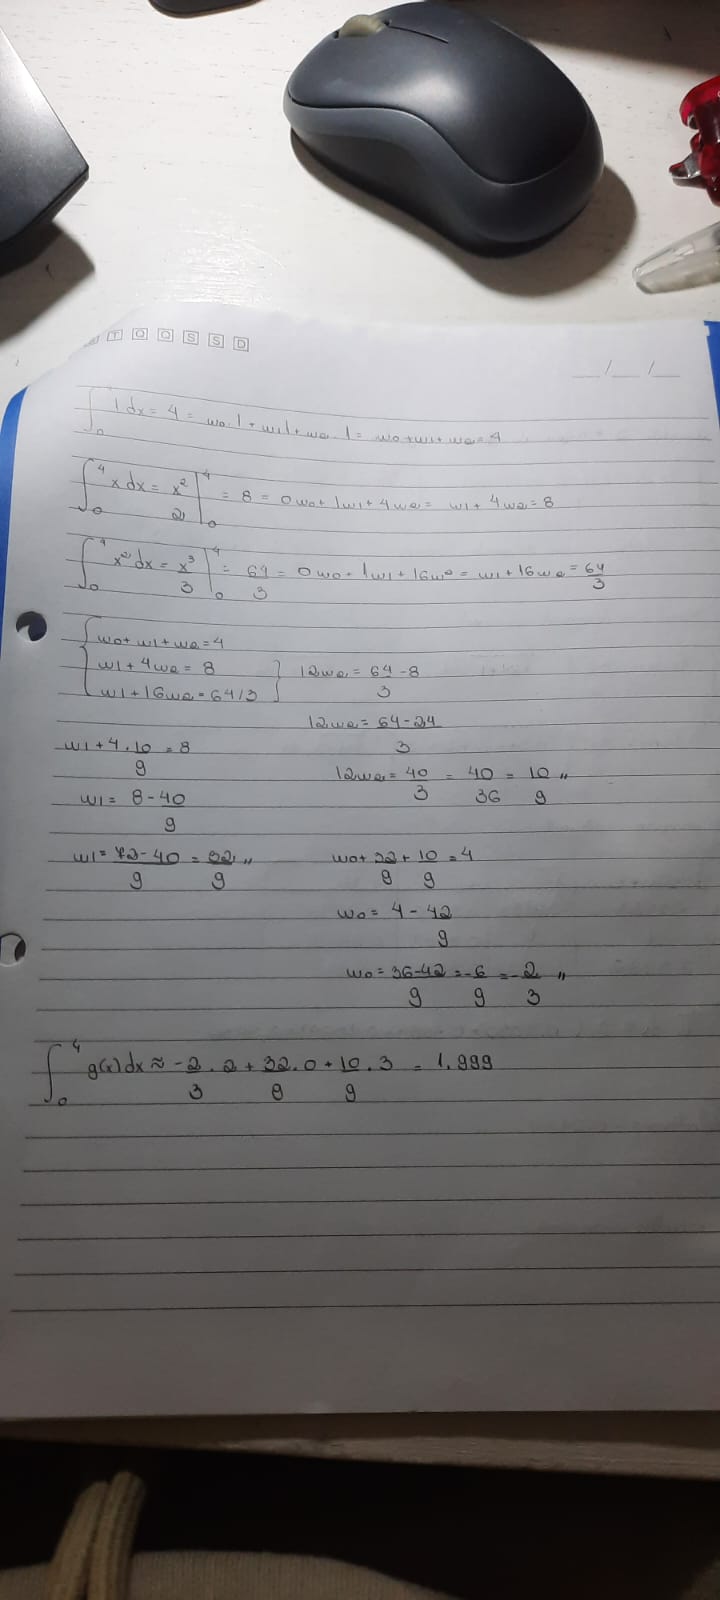 T Q Q S S D
__/__/__
∫₀⁴ 1 dx = 4 = w0.1 + w1.1 + w2.1 = w0+w1+w2=4
∫₀⁴ x dx = x²/2 |₀⁴ = 8 = 0w0 + 1w1 + 4w2 = w1 + 4w2 = 8
∫₀⁴ x² dx = x³/3 |₀⁴ = 64/3 = 0w0 + 1w1 + 16w2 = w1 + 16w2 = 64/3
w0 + w1 + w2 = 4
w1 + 4w2 = 8
w1 + 16w2 = 64/3
12w2 = 64/3 - 8
12w2 = (64-24)/3
w1 + 4.10/9 = 8
12w2 = 40/3 = 40/36 = 10/9 ,,
w1 = 8 - 40/9
w1 = (72-40)/9 = 32/9 ,,
w0 + 32/9 + 10/9 = 4
w0 = 4 - 42/9
w0 = (36-42)/9 = -6/9 = -2/3 ,,
∫₀⁴ g(x) dx ≈ -2/3 . 2 + 32/9 . 0 + 10/9 . 3 = 1.999